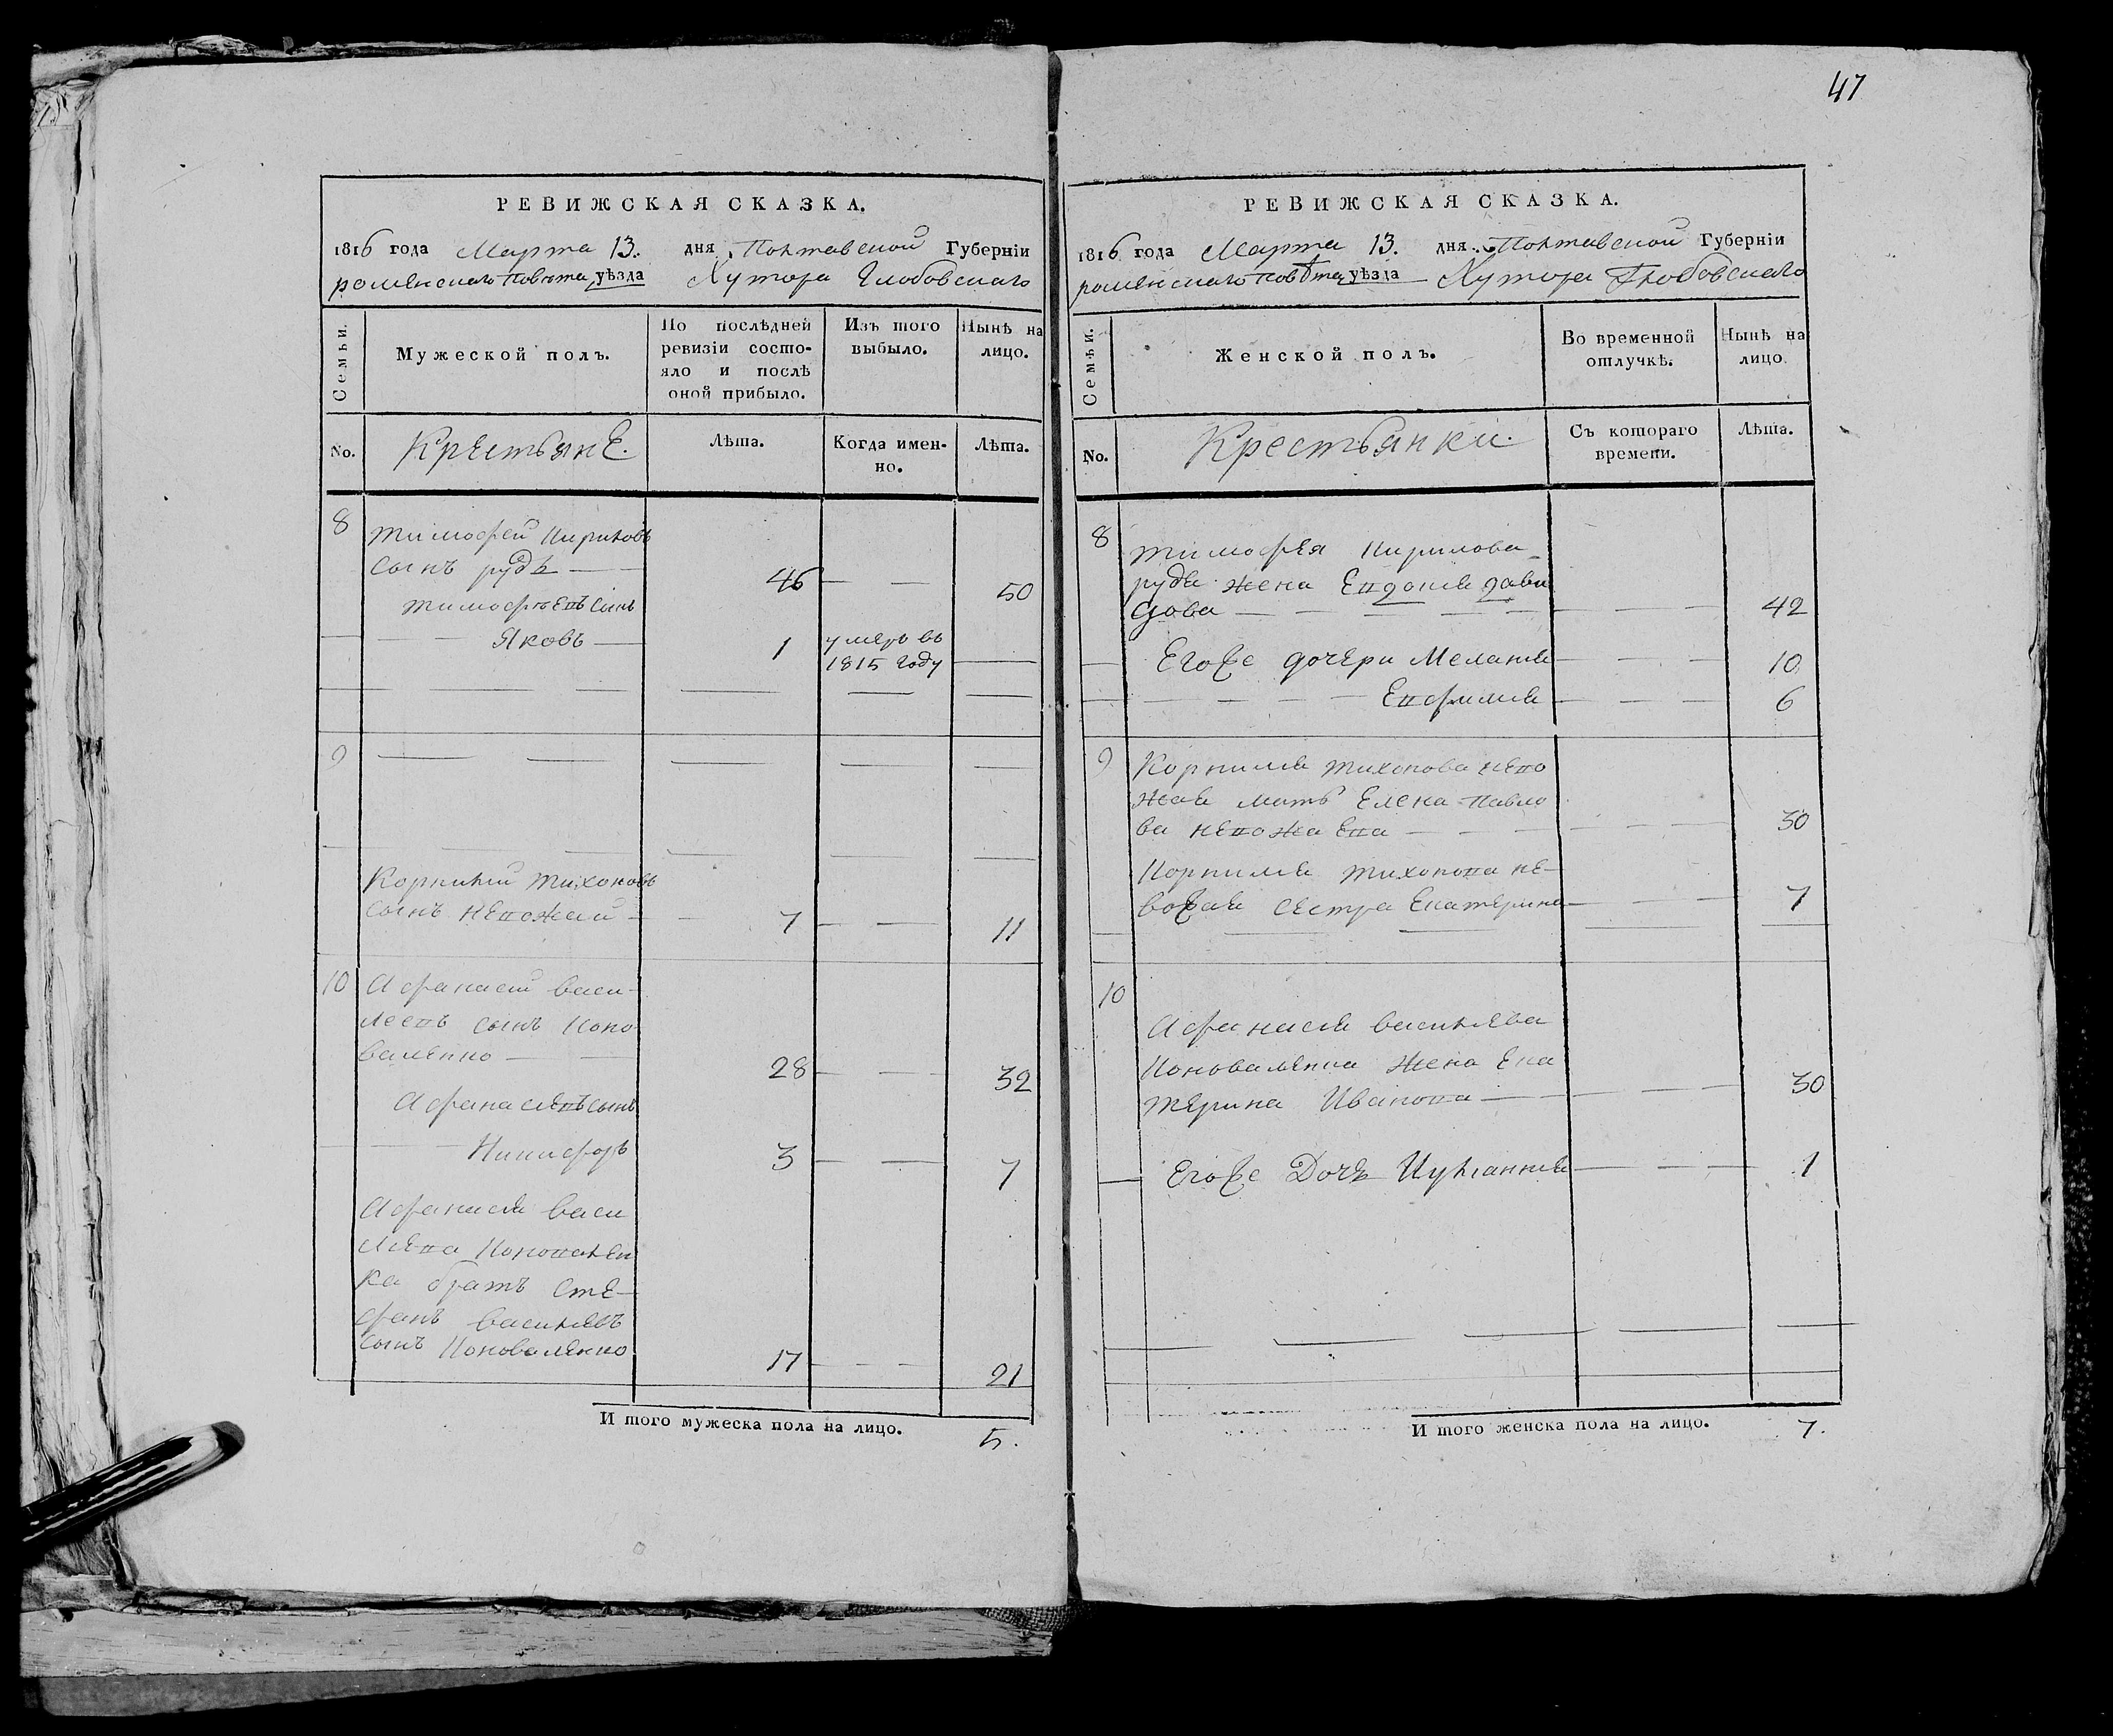 47
РЕВИЖСКАЯ СКАЗКА.
1816 года Марта 13. дня Полтавской Губернiи
роменского повѣта уѣзда Хутора Глобовского
Семьи.
Мужеской полъ.
По послѣдней
ревизiи состо-
яло и послѣ
оной прибыло.
Изъ того
выбыло.
Нынѣ на
лицо.
No.
КрестьянЕ.
Лѣта.
Когда имен-
но.
Лѣта.
8
тимофей кириловъ
сынъ руда
46
50
тимофѣевъ сынъ
Яковъ
1
умеръ въ
1815 году
9
Корнилий тихоновъ
сынъ невожай
7
11
10
Афанасий васи-
леевъ сынъ Коно
валенко
28
32
Афанасиевъ сынъ
Никифоръ
3
7
Афанасия васи
лиева Коновален
ка братъ сте-
фанъ василевъ
сынъ Коноваленко
17
21
И того мужеска пола на лицо.
5.
РЕВИЖСКАЯ СКАЗКА.
1816 года Марта 13. дня Полтавской Губернiи
роменского повѣта уѣзда Хутора Глобовского
Семьи.
Женской полъ.
Во временной
отлучкѣ.
Нынѣ на
лицо.
No.
Крестьянки.
Съ котораго
времени.
Лѣта.
8
тимофея кирилова
руды жена Евдокия дави
дова
42
Егоже дочери Мелания
10
Евфимия
6
9
Корнилия тихонова нево
жая мать Елена Павло
ва невожаева
30
Корнилия тихонова не-
вожая сестра Екатерина
7
10
Афанасия василева
Коноваленка жена Ека
терина Иванова
30
Егоже Дочь Иулианния
1
И того женска пола на лицо.
7.